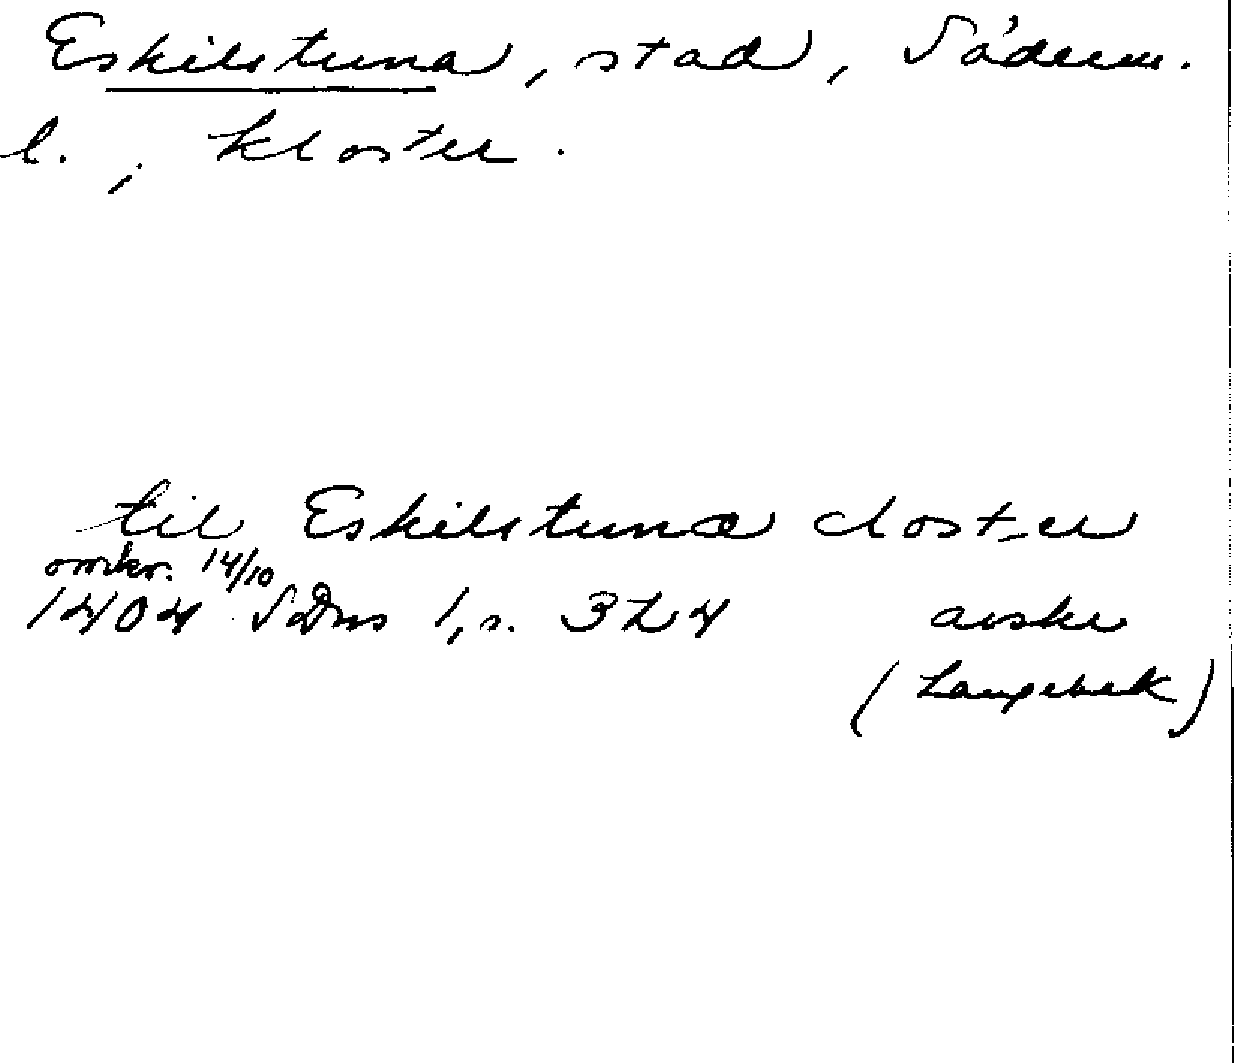 Eskilstuna, stad, Söderm.
l., kloster.
til Eskilstunæ closter
omkr. 14/10
1404 SDns 1, s. 324 avskr
(Langebek)